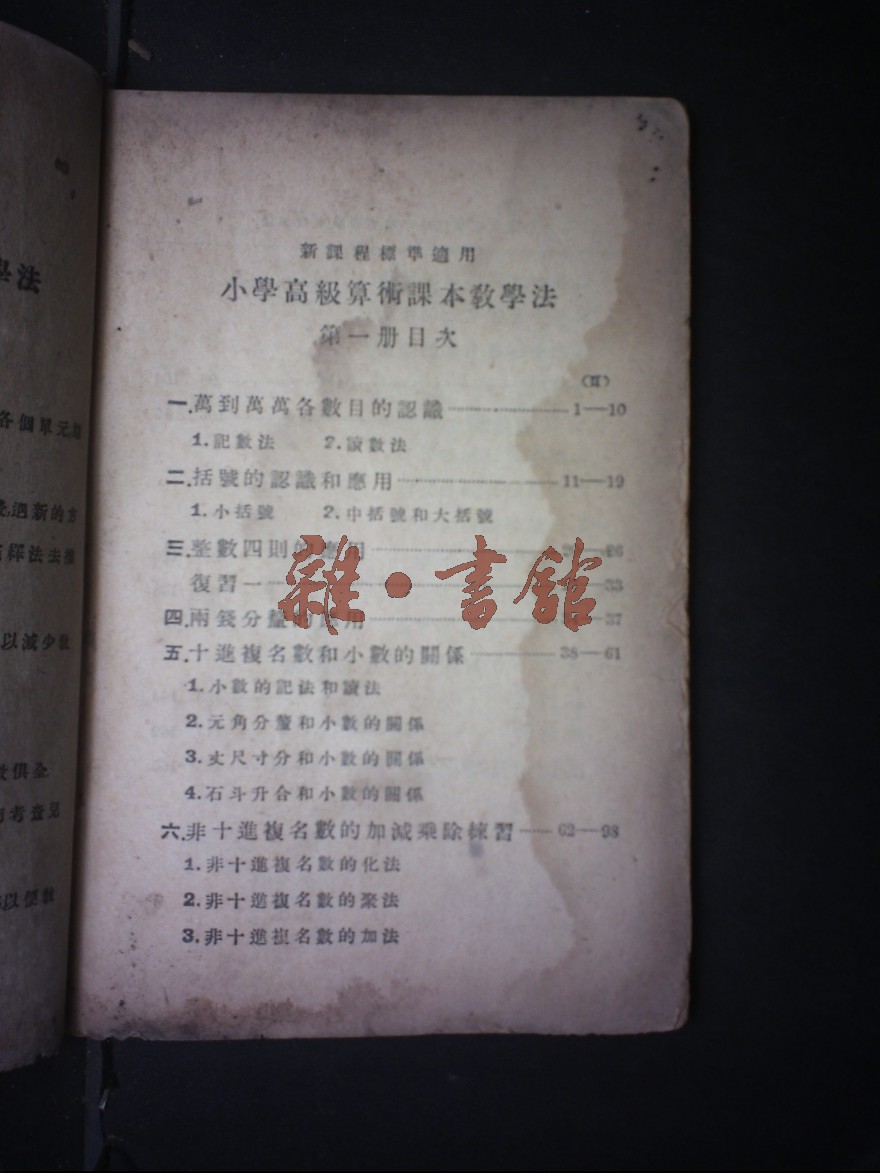 學法
各個單元
遇新的方
釋法去推
以減少教
數俱全
考查見
以便教
新課程標準適用
小學高級算術課本教學法
第一册目次
(頁)
一.萬到萬萬各數目的認識……1—10
1.記數法 2.讀數法
二.括號的認識和應用……11—19
1.小括號 2.中括號和大括號
三.整數四則的應用……26
復習一……33
四.兩錢分釐的應用……37
五.十進複名數和小數的關係……38—61
1.小數的記法和讀法
2.元角分釐和小數的關係
3.丈尺寸分和小數的關係
4.石斗升合和小數的關係
六.非十進複名數的加減乘除練習……62—98
1.非十進複名數的化法
2.非十進複名數的聚法
3.非十進複名數的加法
雜·書館